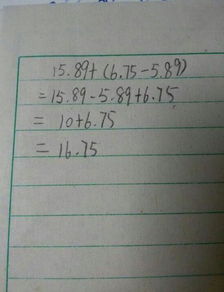 15.89+(6.75-5.89)
=15.89-5.89+6.75
= 10+6.75
= 16.75